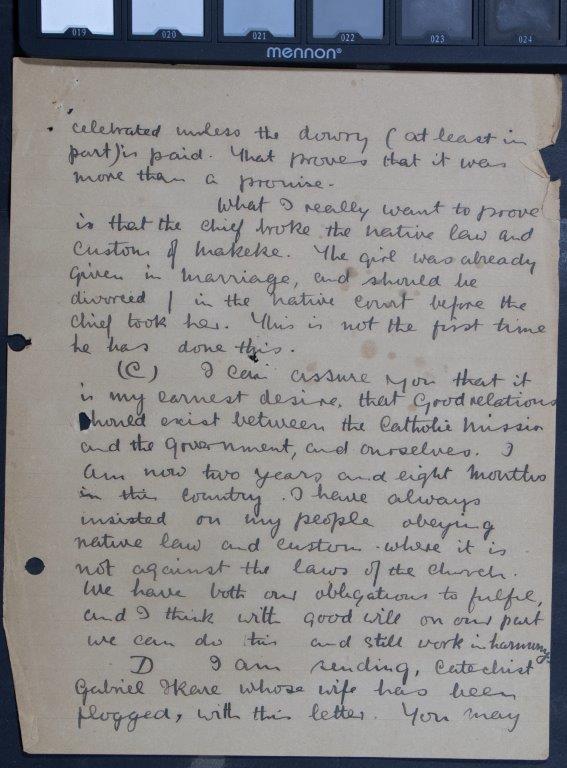 019 020 021 022 023 024
mennon®
celebrated unless the dowry (at least in
part) is paid. That proves that it was
more than a promise.
What I really want to prove
is that the chief broke the native law and
custom of Makeke. The girl was already
given in marriage, and should be
divorced / in the native court before the
chief took her. This is not the first time
he has done this.
(C) I can assure you that it
is my earnest desire, that good relations
should exist between the Catholic Mission
and the Government, and ourselves. I
am now two years and eight months
in this country. I have always
insisted on my people obeying
native law and custom where it is
not against the laws of the church.
We have both our obligations to fulfil,
and I think with good will on our part
we can do this and still work in harmony.
D I am sending, Catechist
Gabriel Ikare whose wife has been
flogged, with this letter. You may